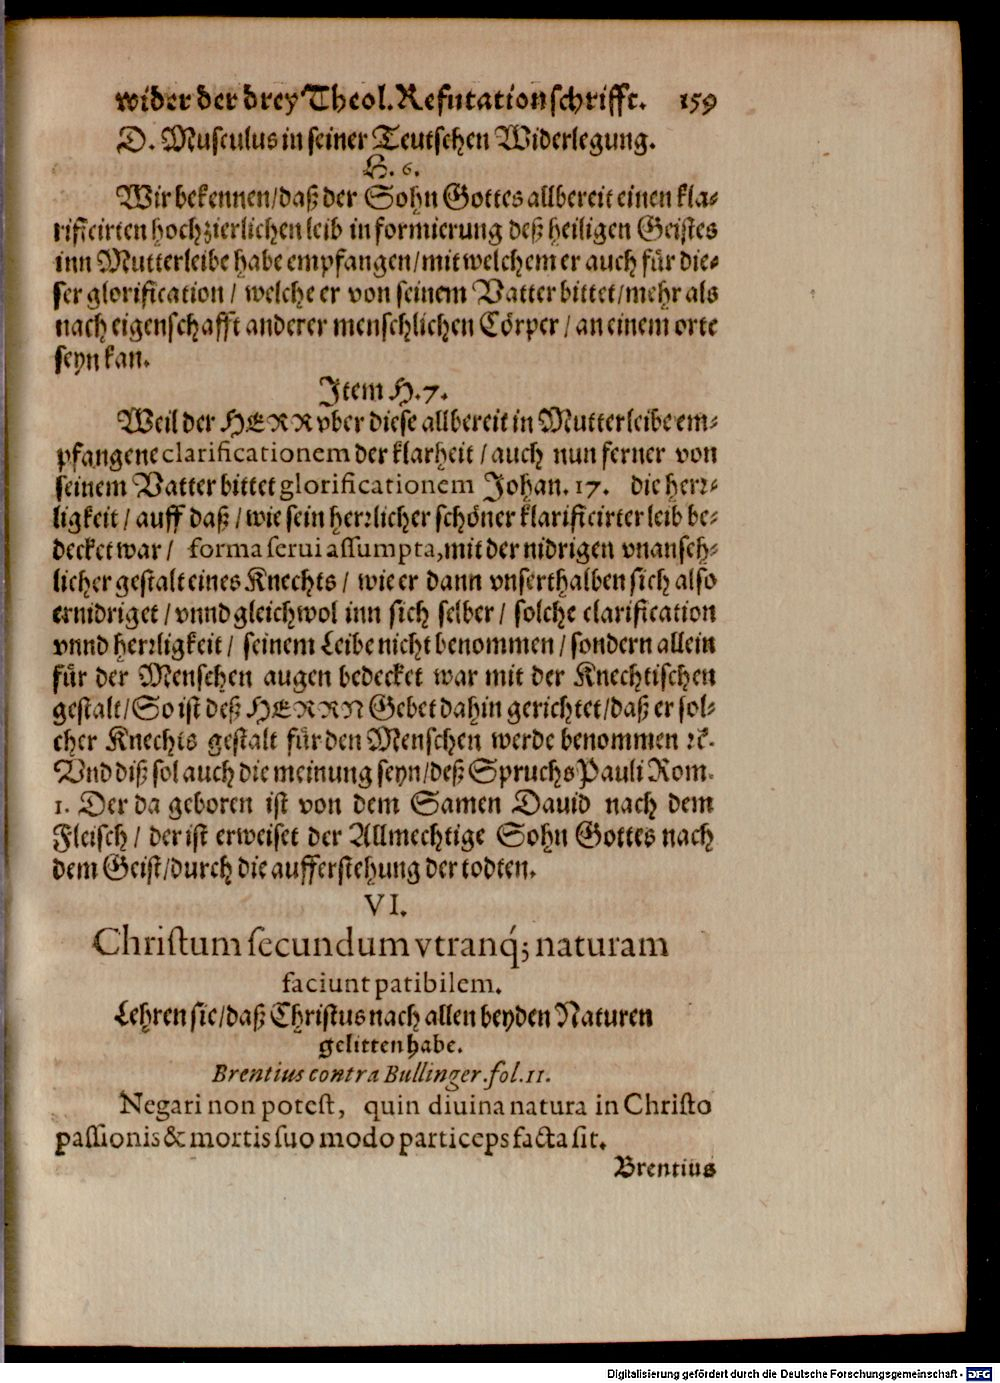 wider der drey Theol. Refutationschrifft. 159
D. Musculus in seiner Teutschen Widerlegung.
H. 6.
Wir bekennen/daß der Sohn Gottes allbereit einen kla-
rificirten hochzierlichen leib in formierung deß heiligen Geistes
inn Mutterleibe habe empfangen/mit welchem er auch für die-
ser glorification / welche er von seinem Vatter bittet/mehr als
nach eigenschafft anderer menschlichen Cörper / an einem orte
seyn kan.
Item H. 7.
Weil der HERR vber diese allbereit in Mutterleibe em-
pfangene clarificationem der klarheit / auch nun ferner von
seinem Vatter bittet glorificationem Johan. 17. die herr-
ligkeit / auff daß / wie sein herrlicher schöner klarificirter leib be-
decket war / forma serui assumpta, mit der nidrigen vnanseh-
licher gestalt eines Knechts / wie er dann vnserthalben sich also
ernidriget / vnnd gleichwol inn sich selber / solche clarification
vnnd herrligkeit / seinem Leibe nicht benommen / sondern allein
für der Menschen augen bedecket war mit der Knechtischen
gestalt/So ist deß HERRN Gebet dahin gerichtet/daß er sol-
cher Knechts gestalt für den Menschen werde benommen ꝛc.
Vnd diß sol auch die meinung seyn/deß Spruchs Pauli Rom.
1. Der da geboren ist von dem Samen Dauid nach dem
Fleisch / der ist erweiset der Allmechtige Sohn Gottes nach
dem Geist/durch die aufferstehung der todten.
VI.
Christum secundum vtranq́; naturam
faciunt patibilem.
Lehren sie/daß Christus nach allen beyden Naturen
gelitten habe.
Brentius contra Bullinger. fol. 11.
Negari non potest, quin diuina natura in Christo
passionis & mortis suo modo particeps facta sit.
Brentius
Digitalisierung gefördert durch die Deutsche Forschungsgemeinschaft - DFG